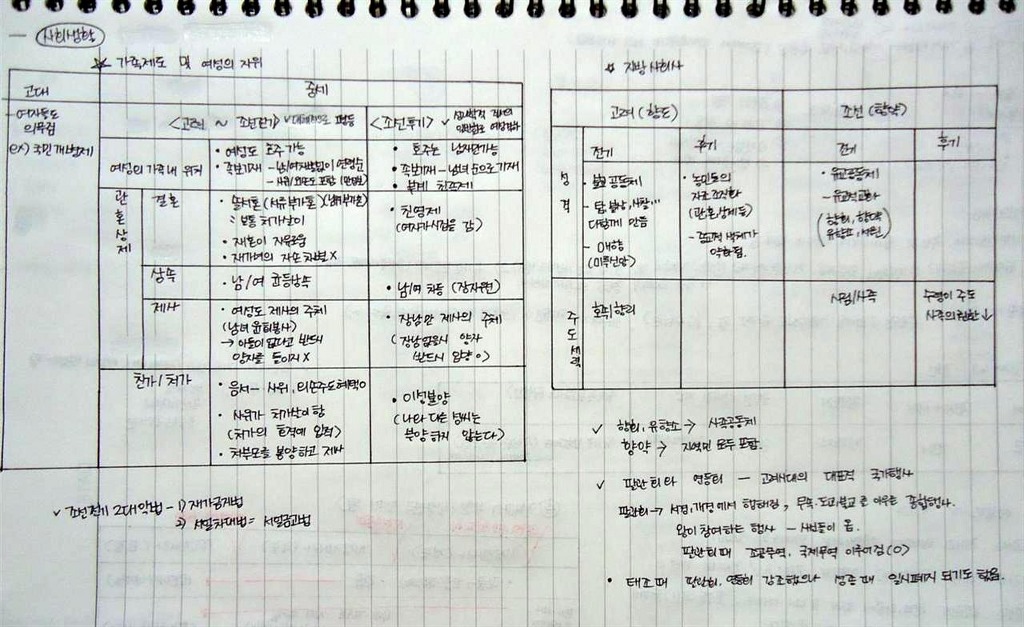 사회생활
가족제도 및 여성의 지위
고대
중세
- 여자들도
의무검
ex) 국민개병제
<고려 ~ 조선전기> ✓대체적으로 평등
<조선후기> ✓성리학적 질서의
여성의 가족내 위치
• 여성도 호주 가능
• 족보기재 - 남/여 차별없이 연령순
- 사위/외손도 포함
• 호주는 남자만가능
• 족보기재 - 남녀 순으로 기재
• 부계 친족제
관혼상제
결혼
• 솔서혼 (서류부가혼)
보통 처가살이
• 재혼이 자유로움
• 재가녀의 자손 차별X
• 친영제
(여자가 시집을 감)
상속
• 남/여 균등상속
• 남/여 차등 (장자위)
제사
• 여성도 제사의 주체
(남녀 윤회봉사)
→ 아들이 없다고 반드시
양자를 들이지 X
• 장남만 제사의 주체
(장남 없을시 양자
반드시 입양 o)
친가/처가
• 음서 - 사위, 외손주도 혜택O
• 사위가 처가살이 함
(처가의 호적에 입적)
• 처부모를 봉양하고 제사
• 이성불양
(나와 다른 성씨는
봉양하지 않는다)
✓ 조선전기 2대악법 - 1) 재가금지법
2) 서얼차대법 = 서얼금고법
지방사회사
고려 (향도)
조선 (향약)
전기
후기
전기
후기
성격
• 불교공동체
- 탑, 불상, 사찰...
대규모 만듦
- 매향
(미륵신앙)
• 농민들의
자조조직화
(관혼상제 등)
- 종교적 색채가
약하짐.
• 유교공동체
- 유교적교화
(향회, 향약
유향소, 서원)
주도세력
호족향리
사림/사족
수령이 주도
사족의 권한 ↓
✓ 향회, 유향소 → 사족공동체
향약 → 지역민 모두 포함.
✓ 팔관회와 연등회 - 고려시대의 대표적 국가행사
팔관회 → 서경, 개경에서 행해짐, 무속, 도교, 불교를 아우른 종합행사.
왕이 참여하는 행사 - 사신들이 옴.
팔관회 때 조공무역, 국제무역 이루어짐(O)
• 태조때 팔관회, 연등회 강조했으나 성종때 일시폐지 되기도 했음.